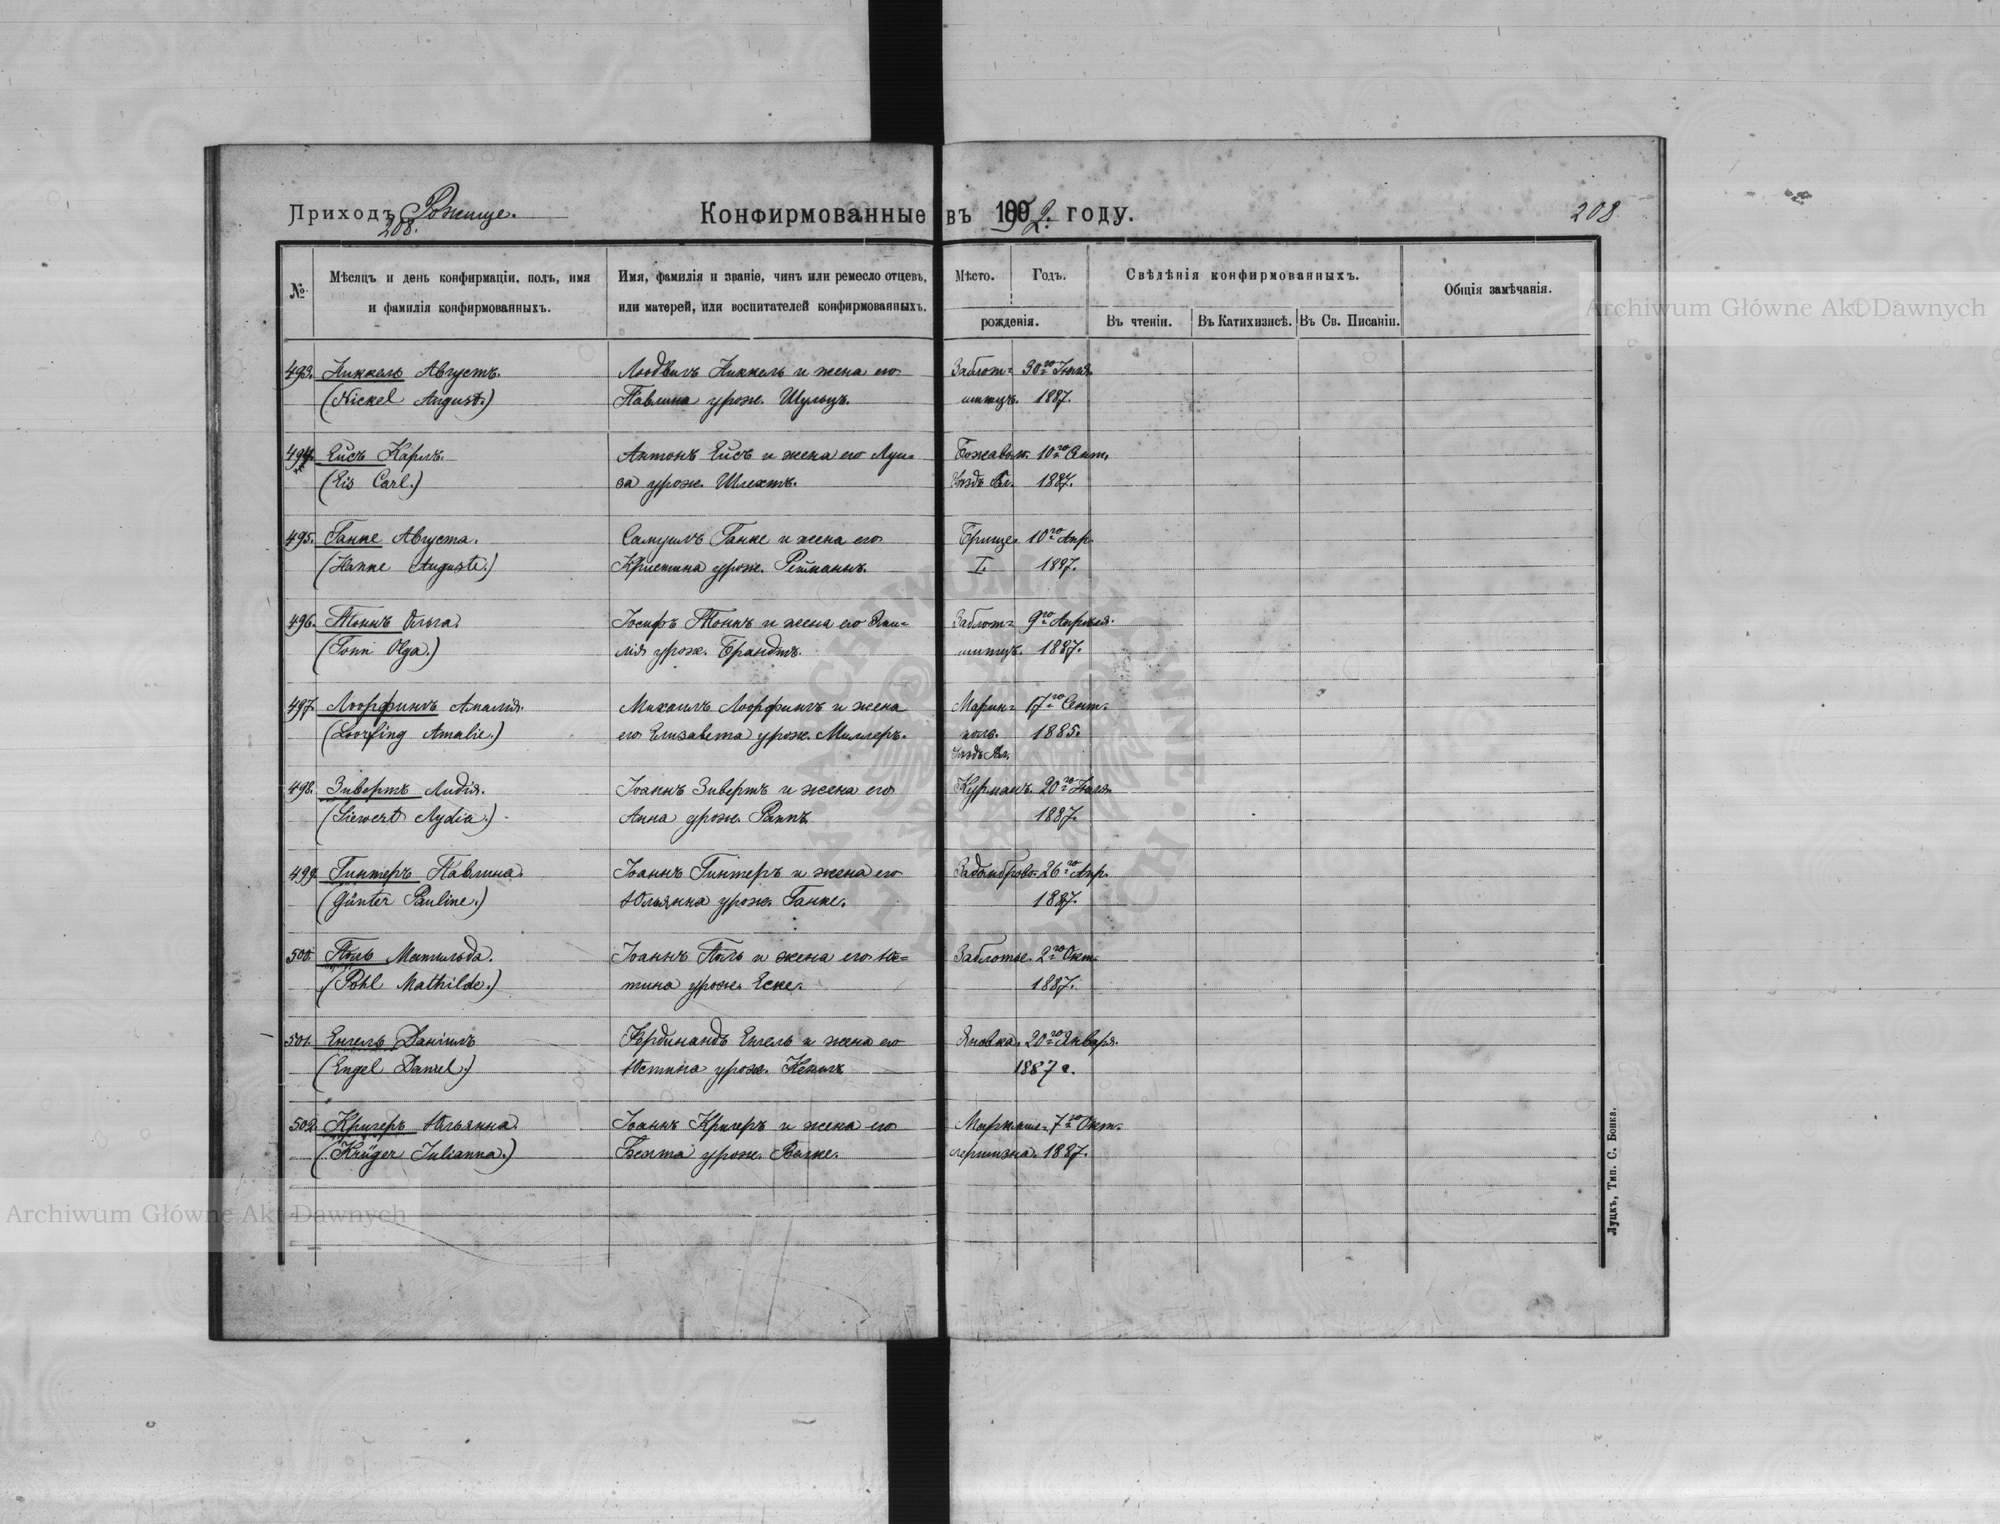 Приходъ Рожище.
208.
Конфирмованные въ 1902. году.
208
№
Мѣсяцъ и день конфирмаціи, полъ, имя
и фамилія конфирмованныхъ.
Имя, фамилія и званіе, чинъ или ремесло отцевъ,
или матерей, или воспитателей конфирмованныхъ.
Мѣсто.
Годъ.
рожденія.
Свѣдѣнія конфирмованныхъ.
Въ чтеніи.
Въ Катихизисѣ.
Въ Св. Писаніи.
Общія замѣчанія.
493. Никкель Августъ. Людвигъ Никкель и жена его Заблот= 30го Іюня
(Nickel August.) Павлина урож. Шульцъ. 1887.
494. Ейсъ Карлъ. Антонъ Ейсъ и жена его Луи= 10го Сент.
(Eis Carl.) за урож. Шлехтъ. 1887.
495. Ганке Августа. Самуилъ Ганке и жена его Брище. 10го Апр.
(Hanke Auguste.) Христина урож. Рейманъ. I. 1887.
496. Тоннъ Ольга. Іосифъ Тоннъ и жена его Эми= Заблот= 9го Апрѣля.
(Tonn Olga.) лія урож. Брандтъ. 1887.
497. Лоорфингъ Амалія. Михаилъ Лоорфингъ и жена Марин= 17го Сент.
(Loorfing Amalie.) его Елизавета урож. Миллеръ. поль. 1885.
498. Зивертъ Лидія. Іоаннъ Зивертъ и жена его Курманъ. 20го
(Siewert Lydia.) Анна урож. Раппъ. 1887.
499. Гинтеръ Павлина. Іоаннъ Гинтеръ и жена его 26го Апр.
(Günter Pauline.) Юльянна урож. Ганке. 1887.
500. Поль Матильда. Іоаннъ Поль и жена его Юс= Заблотье. 2го Окт.
(Pohl Mathilde.) тина урож. Еске. 1887.
501. Енгель Даніилъ Фердинандъ Енгель и жена его Яновка. 20го Января.
(Engel Daniel.) Юстина урож. 1887 г.
502. Кригеръ Юльянна. Іоаннъ Кригеръ и жена его 7го Окт.
(Krüger Julianna.) Берта урож. 1887.
Луцкъ, Тип. С. Бонка.
Archiwum Główne Akt Dawnych
Archiwum Główne Akt Dawnych
ARCHIWUM GŁÓWNE
AKT DAWNYCH